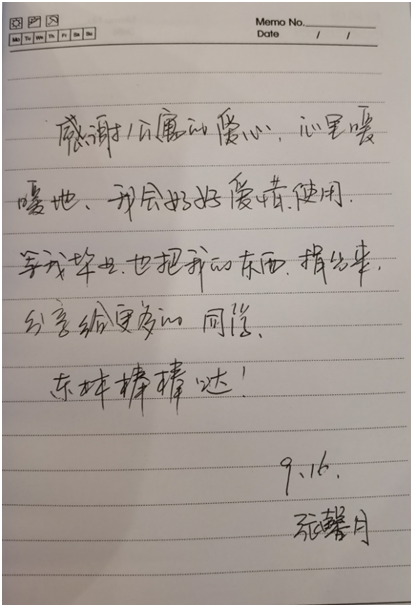 Memo No.
Mo Tu We Th Fr Sa Su
Date / /
感谢公寓的爱心，心里暖
暖地、我会好好爱惜使用.
等我毕业.也把我的东西.捐出来,
分享给更多的 同学、
东林棒棒哒！
9.16.
张馨月